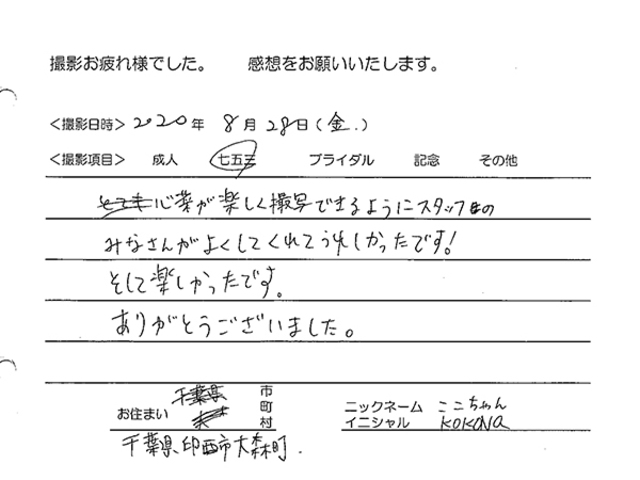 撮影お疲れ様でした。 感想をお願いいたします。
<撮影日時> 2020年 8月 28日(金.)
<撮影項目> 成人 七五三 ブライダル 記念 その他
とても心菜が楽しく撮写できるようにスタッフの
みなさんがよくしてくれてうれしかったです!
そして楽しかったです。
ありがとうございました。
千葉県 市
お住まい 町 ニックネーム ここちゃん
村 イニシャル KOKONA
千葉県印西市大森町.